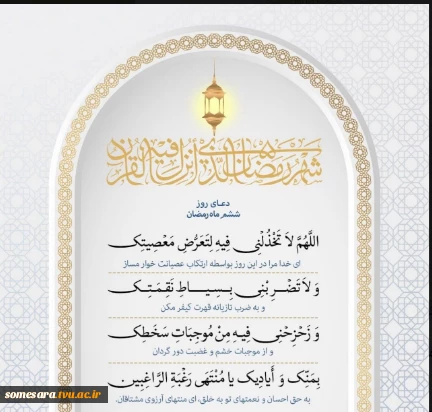 شهر رمضان الذي أنزل فيه القرآن
دعای روز
ششم ماه رمضان
اللَّهُمَّ لاَ تَخْذُلْنِي فِيهِ لِتَعَرُّضِ مَعْصِيَتِكَ
ای خدا مرا در این روز بواسطه ارتکاب عصیانت خوار مساز
وَ لاَ تَضْرِبْنِي بِسِيَاطِ نَقِمَتِكَ
و به ضرب تازیانه قهرت کیفر مکن
وَ زَحْزِحْنِي فِيهِ مِنْ مُوجِبَاتِ سَخَطِكَ
و از موجبات خشم و غضبت دور گردان
بِمَنِّكَ وَ أَيَادِيكَ يَا مُنْتَهَى رَغْبَةِ الرَّاغِبِينَ
به حق احسان و نعمتهای تو به خلق، ای منتهای آرزوی مشتاقان.
somesara.tvu.ac.ir